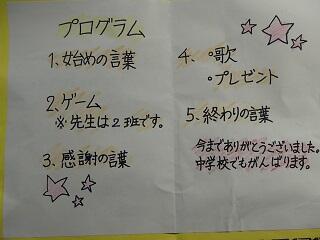 プログラム
1、始めの言葉
2、ゲーム
※先生は2班です。
3、感謝の言葉
4、・歌
・プレゼント
5、終わりの言葉
今までありがとうございました。
中学校でもがんばります。